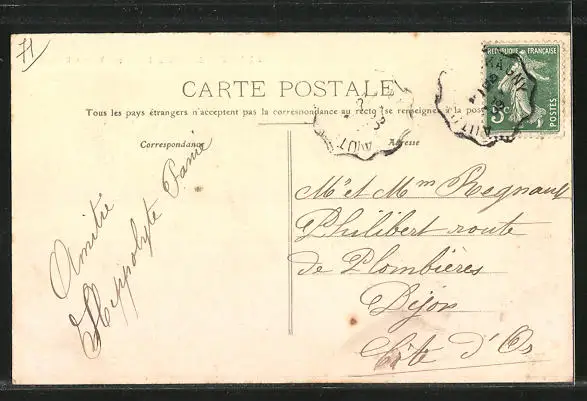 71
CARTE POSTALE
Tous les pays étrangers n'acceptent pas la correspondance au recto (se renseigner à la poste)
Correspondance
Adresse
RÉPUBLIQUE FRANÇAISE
5c
POSTES
Amitié
Hippolyte
Mr et Mm Regnault
Philibert route
de Plombières
Dijon
Côte d'Or